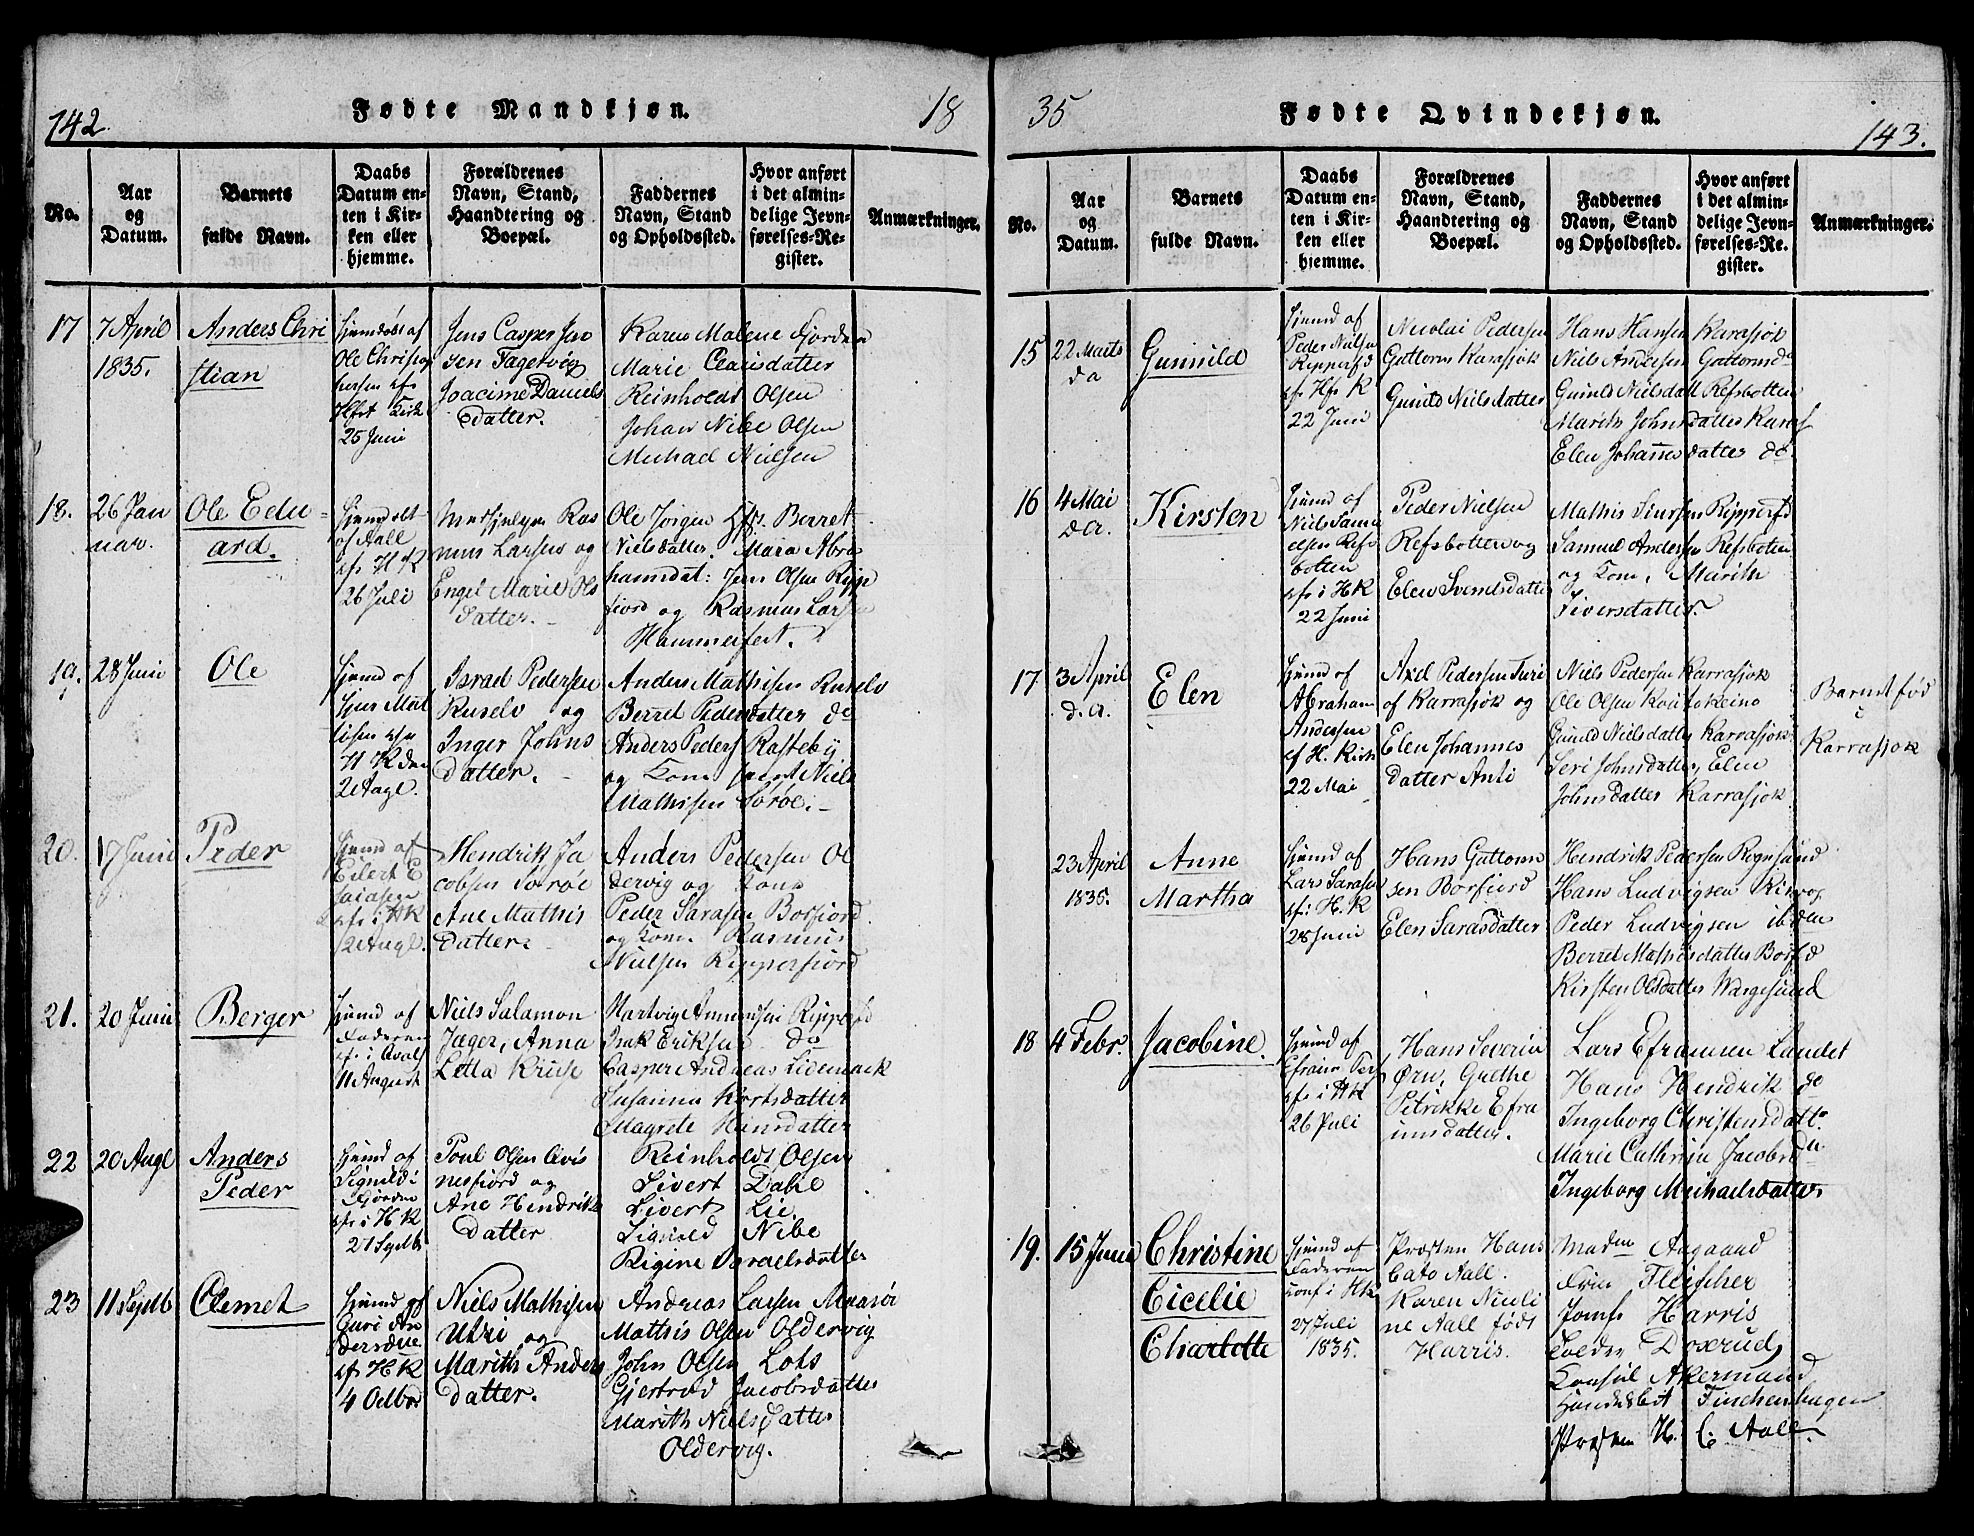 142.
Fødte Mandkjøn.
18
No.
Aar
og
Datum.
Barnets
fulde Navn.
Daabs
Datum en-
ten i Kir-
ken eller
hjemme.
Forældrenes
Navn, Stand,
Haandtering og
Boepæl.
Faddernes
Navn, Stand
og Opholdssted.
Hvor anført
i det almin-
delige Jevn-
førelses-Re-
gister.
Anmærkninger.
17
7 April
1835.
Anders Chri
stian
hjemdøbt af
Ole Christop
hersen
Kirke
25 Juni
Jens Casper Jen
sen Fagervög
Joacime Daniels
datter.
Karen Malene Fjorden
Marie Clausdatter
Reinholdt Olsen
Johan Nibe Olsen
Michael Nielsen
18.
26 Jan
uar.
Ole Edu-
ard.
hjemdøbt
af Aall
cfr H K
26 Juli
Ras
mus Larsen og
Engel Marie Ols
datter.
Ole Jørgen Berret
Nielsdatter. Mara Abra
hamsdat: Jens Olsen Ripp
fiord og Rasmus Lars
Hammerfest.
19.
28 Juni
Ole
hjemd af
Mat
hisen cfr
H K den
2 Augl.
Israel Pedersen
Kuselv og
Inger Johns
datter.
Anders Mathisen Kuselv
Berret Pedersdatter do
Anders Peders Rastebÿ
og Kone samt Niels
Mathisen Sørøe.
20.
17 Juni
Peder
hjemd af
Eilert E
saiasen
cfr i HK
2 Augl.
Hendrik Ja
cobsen Sørøe
Ane Mathis
datter.
Anders Pedersen Ol
dervig og Kone
Peder Sarasen Borfiord.
og Kone. Rasmus
Nielsen Ripperfiord
21.
20 Juni
Berger
hjemd af
Faderen
cfr i
11 August
Niels Salamon
Jæger, Anna
Letta Kruse
Hartvig Ammundsen Ripperfd
Isak Eriksen do
Casper Andreas Lidemark
Susanna Kortsdatter
Magrete Hansdatter
22
20 Augl
Anders
Peder
hjemd af
Sigvald i
Fjorden
cfr i H K
21 Septb
Poul Olsen Qvis
nesfjord og
Ane Hendriks
datter
Reinholdt Olsen
Sivert Dahl
Sivert Lie
Sigvald Nibe
Rigine Israelsdatter
23
11 Septb
Clemet
hjemd af
Guri An
dersdtte
cf. H K
4 Octbr
Niels Mathisen
Utzi og
Marith Anders
datter.
Andreas Larsen
Mathis Olsen Oldervig
John Olsen Lots
Gjertrud Jacobsdatter
Marith Nielsdatter
Oldervig.
35
Fødte Qvindekjøn.
143.
No.
Aar
og
Datum.
Barnets
fulde Navn.
Daabs
Datum en-
ten i Kir-
ken eller
hjemme.
Forældrenes
Navn, Stand,
Haandtering og
Boepæl.
Faddernes
Navn, Stand
og Opholdssted.
Hvor anført
i det almin-
delige Jevn-
førelses-Re-
gister.
Anmærkninger.
15
22 Marts
d a
Gunnild
hjemd af
Peder Nielsen
Ripperfd
cfr Hfs K
22 Juni
Nicolai Pedersen
Guttorm Karasjok
Gunild Nielsdatter
Hans Hansen Karasjok
Niels Andersen Guttormsd
Gunild Nielsdatt Refsbotten
Marith Johnsdatter Karasj
Elen Johannesdatter do.
16
4 Mai
d a.
Kirsten
hjemd af
Niels Samu
elsen Refs
botten
cfr i H K
22 Juni
Peder Nielsen
Refsbotten og
Elen Svendsdatter
Mathis Siursen Ripperfd
Samuel Andersen Refsboten
og Kone, Marith
Siversdatter.
17
3 April
d. a.
Elen
hjemd af
Abraham
Andersen
cf H. Kirk
22 Mai
Axel Pedersen Turi
af Karrasjok og
Elen Johannes
datter Anti
Niels Pedersen Karrasjok
Ole Olsen Koutokeino
Gunild Nielsdatter Karrasjok
Seri Johnsdatter, Elen
Johnsdatter Karrasjok
Barnet fød
i
Karrasjok
23 April
1835.
Anne
Martha
hjemd af
Lars Sarasen
cfr i H. K
28 Juni
Hans Guttorm
sen Borfierd
Elen Sarasdatter
Hendrik Pedersen Rognsund
Hans Ludvigsen
Peder Ludvigsen ibiden
Berret Mathisdatter Borfd
Kirsten Olsdatter Wargesund
18
4 Febr.
Jacobine.
hjemd af
Efraim Per
cfr i HK
26 Juli
Hans Severin
Ørn, Grethe
Petrikke Efra
imsdatter.
Lars Eframsen Landet
Hans Hendrik do
Ingeborg Christensdattr
Marie Cathrin Jacobsd
Ingeborg Michaelsdatter
19.
15 Juni
Christine
Cicelie
Charlotte
hjemd af
Faderen
conf i Hk
27 Juli
1835.
Præsten Hans
Cato Aall.
Karen Nicoli
ne Aall født
Harris.
Madm Aagaard
Frue Fleischer
Jomfr Harris
Doxrud,
Consul Akermand
Finchenhagen
Præsten H. C. Aall.